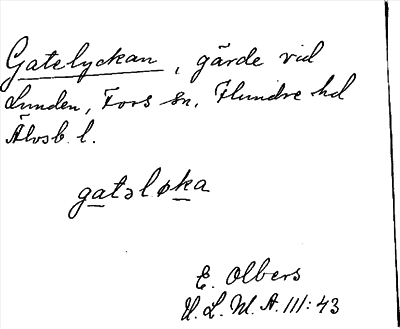 Gatelyckan, gärde vid
Lunden, Fors sn. Flundre hd
Älvsb. l.
gatəløka
E. Olbers
U. L. M. A. 111:43